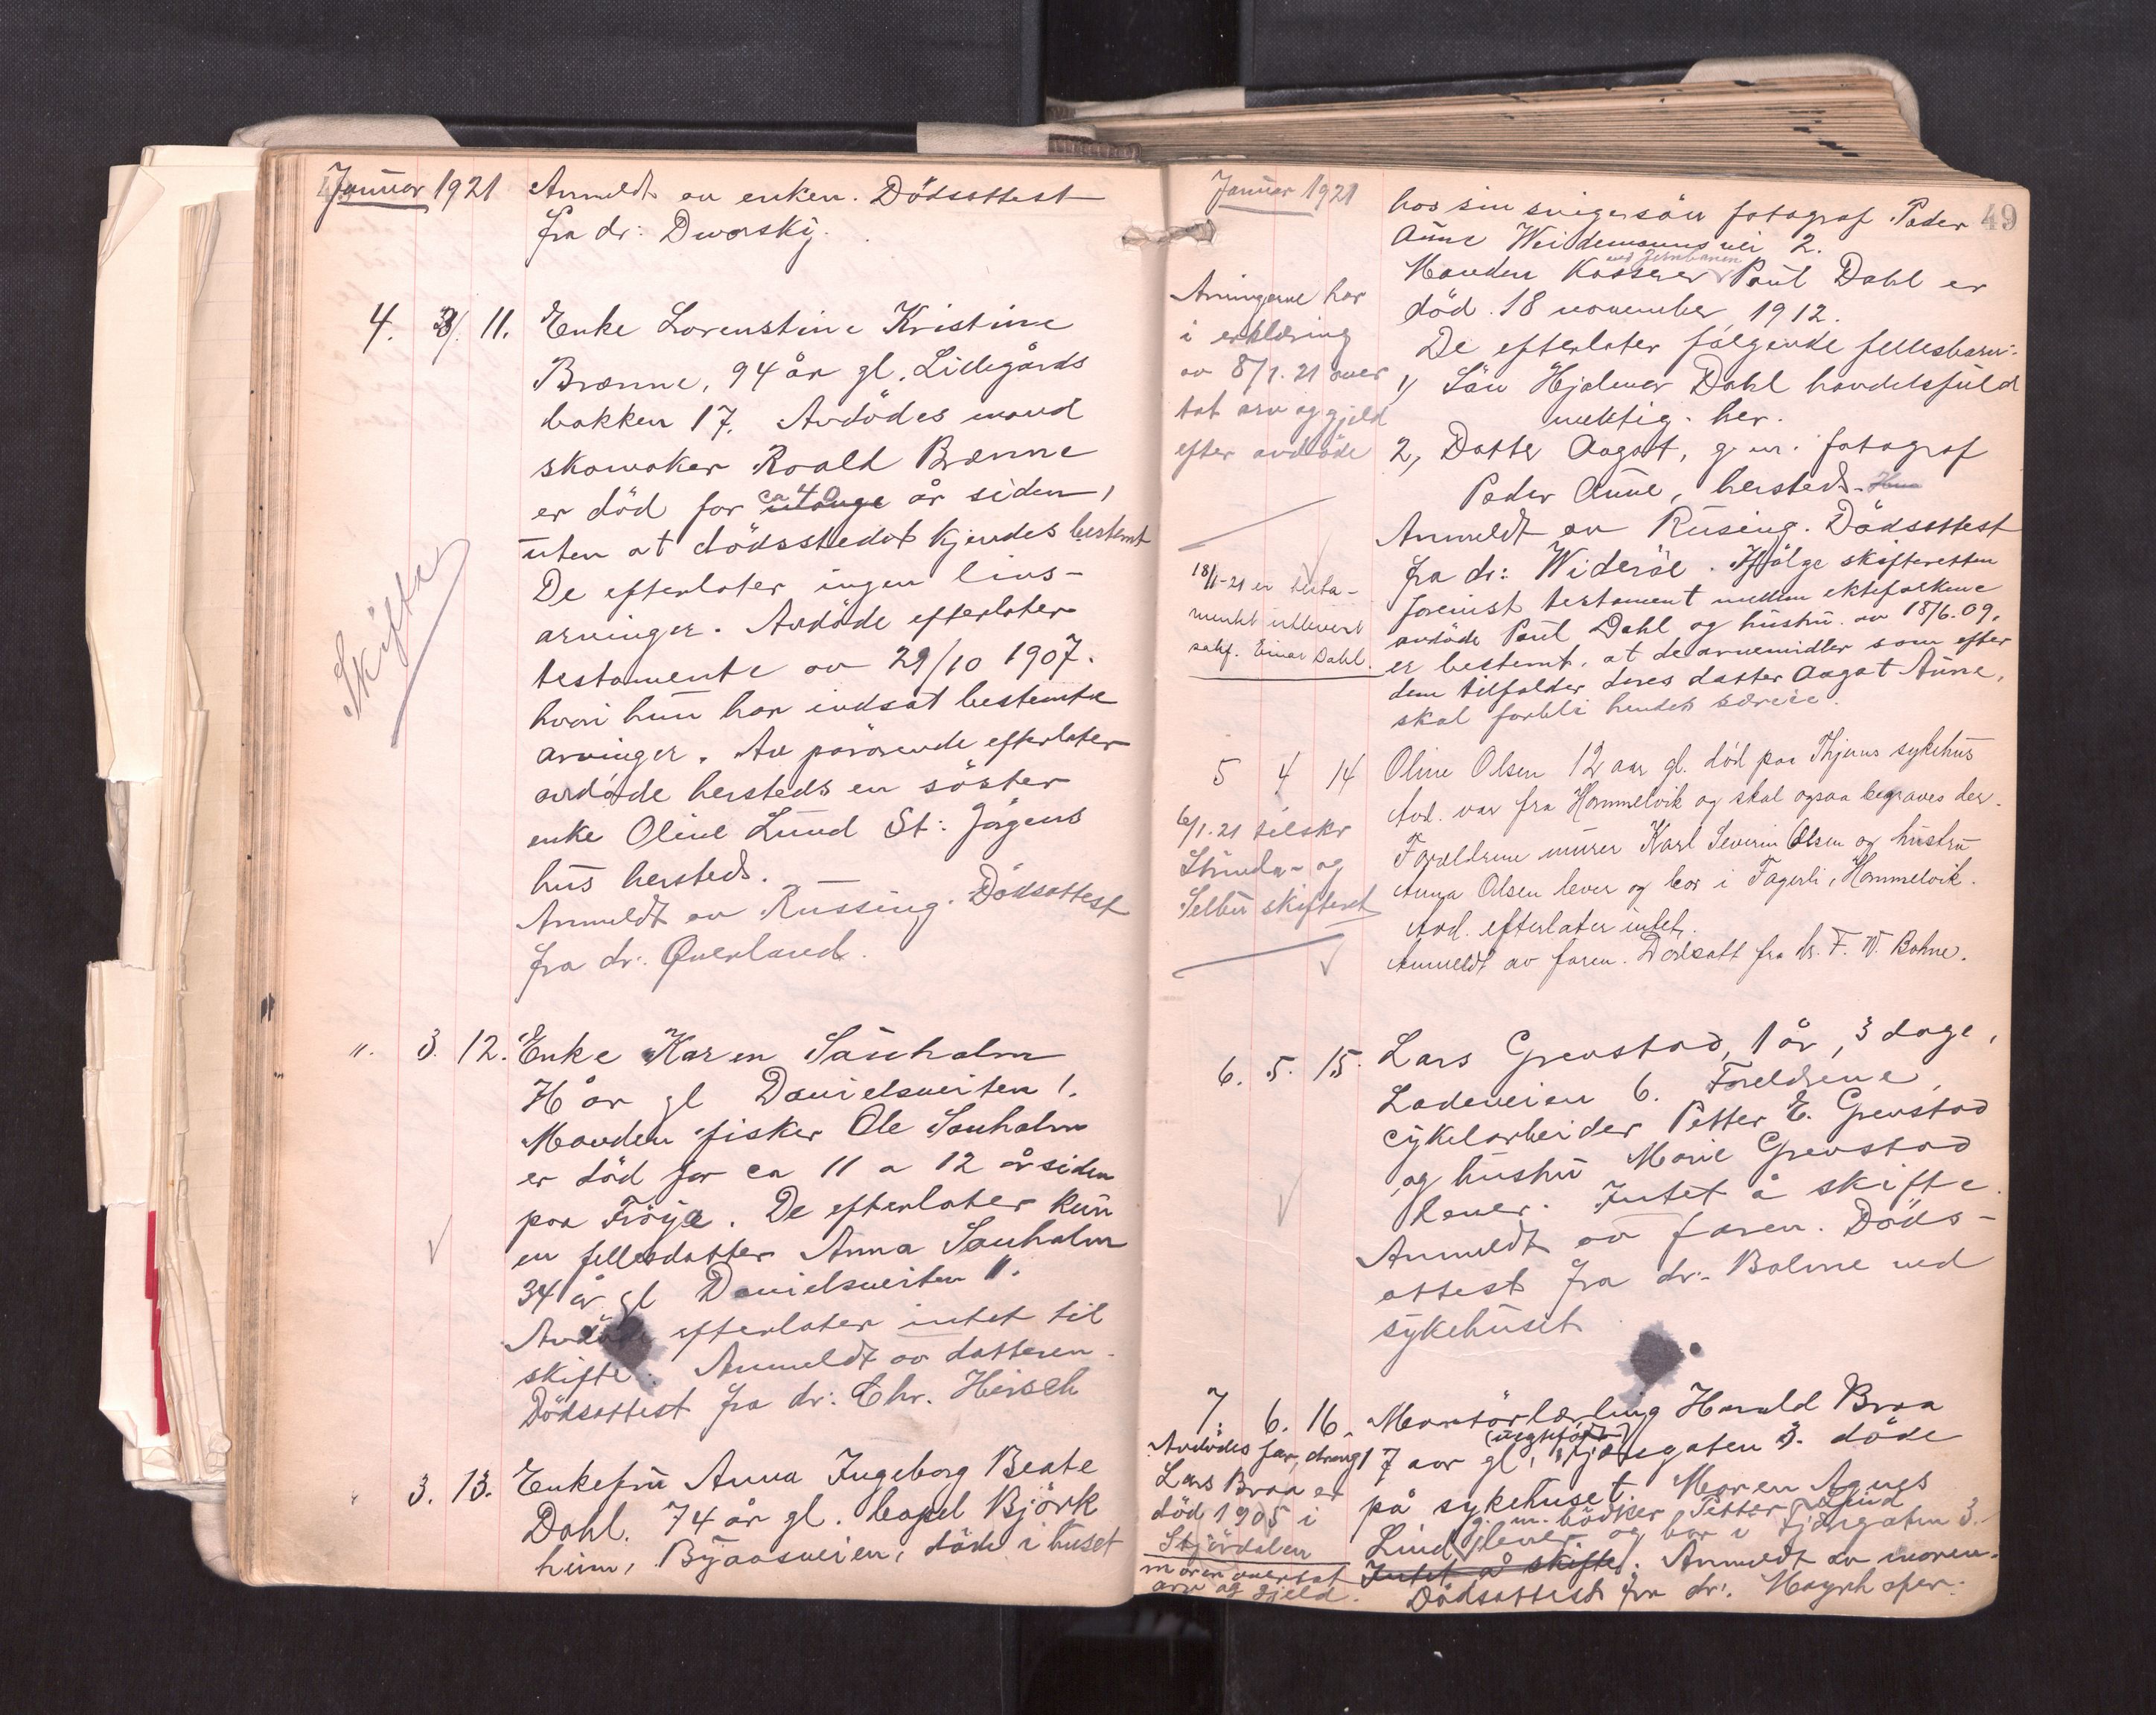 Januar 1921
Anmeldt av enken. Dödsattest
fra dr: Dworsky.
4. 3/. 11. Enke Lorenstine Kristine
Brænne, 94 år gl. Lillegårds
bakken 17. Avdödes mand
skomaker Roald Brænne
er död for ca 40 mange år siden,
uten at dödsstedet kjendes bestemt
De efterlater ingen livs-
arvinger. Avdöde efterlater
testamente av 29/10 1907.
hvori hun har indsat bestemte
arvinger. Av pårörende efterlater
avdöde hersteds en söster
enke Oline Lund St: Jørgens
hus hersteds.
Anmeldt av Russing. Dödsattest
fra dr: Qverland.
Skifte
". 3. 12. Enke Karen Sauholm
74 år gl Danielsveiten 1.
Manden fisker Ole Sauholm
er död for ca 11 a 12 år siden
paa Fröya. De efterlater kun
en fellesdatter Anna Sauholm
34 år gl Danielsveiten 11.
Avdöde efterlater intet til
skifte. Anmeldt av datteren.
Dödsattest fra dr: Chr. Hirsch
" 3. 13. Enkefru Anna Ingeborg Beate
Dahl. 74 år gl. Björk
heim, Byaasveien, döde i huset
Januar 1921
49
hos sin svigersön fotograf Peder
Aune Weidemannsvei 2.
Manden Kasserer ved Jernbanen Paul Dahl er
död 18 november 1912.
De efterlater følgende fellesbarn:
1, Sön Hjalmar Dahl handelsfuld
mektig. her.
2, Datter Aagot, g. m. fotograf
Peder Aune, hersteds. Hun
Anmeldt av Rusing. Dödsattest
fra dr: Wideröe. Ifölge skifteretten
forevist testament mellem ektefolkene
avdöde Paul Dahl og hustru av 18/6.09.
er bestemt, at de arvemidler som efter
dem tilfalder deres datter Aagot Aune,
skal forbli hendes særeie.
Arvingerne har
i erklæring
av 8/1.21 over
tat arv og gjeld
efter avdöde
18/11-21 er testa-
mentet utlevert
sakf. Einar Dahl.
5 4 14 Oline Olsen 12 aar gl. död paa Thjems sykehus
Avd. var fra Hommelvik og skal ogsaa begraves der.
Forældrene murer Karl Severin Olsen og hustru
Anna Olsen lever og bor i Fagerli, Hommelvik.
Avd. efterlater intet.
Anmeldt av faren. Dödsatt fra dr. F. W. Bohne.
6/1.21 tilskr
Strinda- og
Selbu skifteret
6. 5. 15. Lars Grenstad, 1 år, 3 dage,
Ladeveien 6. Foreldrene,
cykelarbeider Petter E. Grenstad
og hustru Marie Grenstad
lever. Intet å skifte.
Anmeldt av faren. Döds-
attest fra dr: Bohne ved
sykehuset
7. 6. 16. Montörlærling Harald Braa
17 aar gl, (uegtefödt) Fjærgaten 3. döde
på sykehuset. Moren Agnes
Lind g. m. bödker Petter Lind
lever og bor i Fjærgaten 3.
Intet å skifte. Anmeldt av moren.
Dödsattest fra dr:
Avdödes far, dreng
Lars Braa er
död 1905 i
Stjördalen
moren overtat
arv og gjeld.